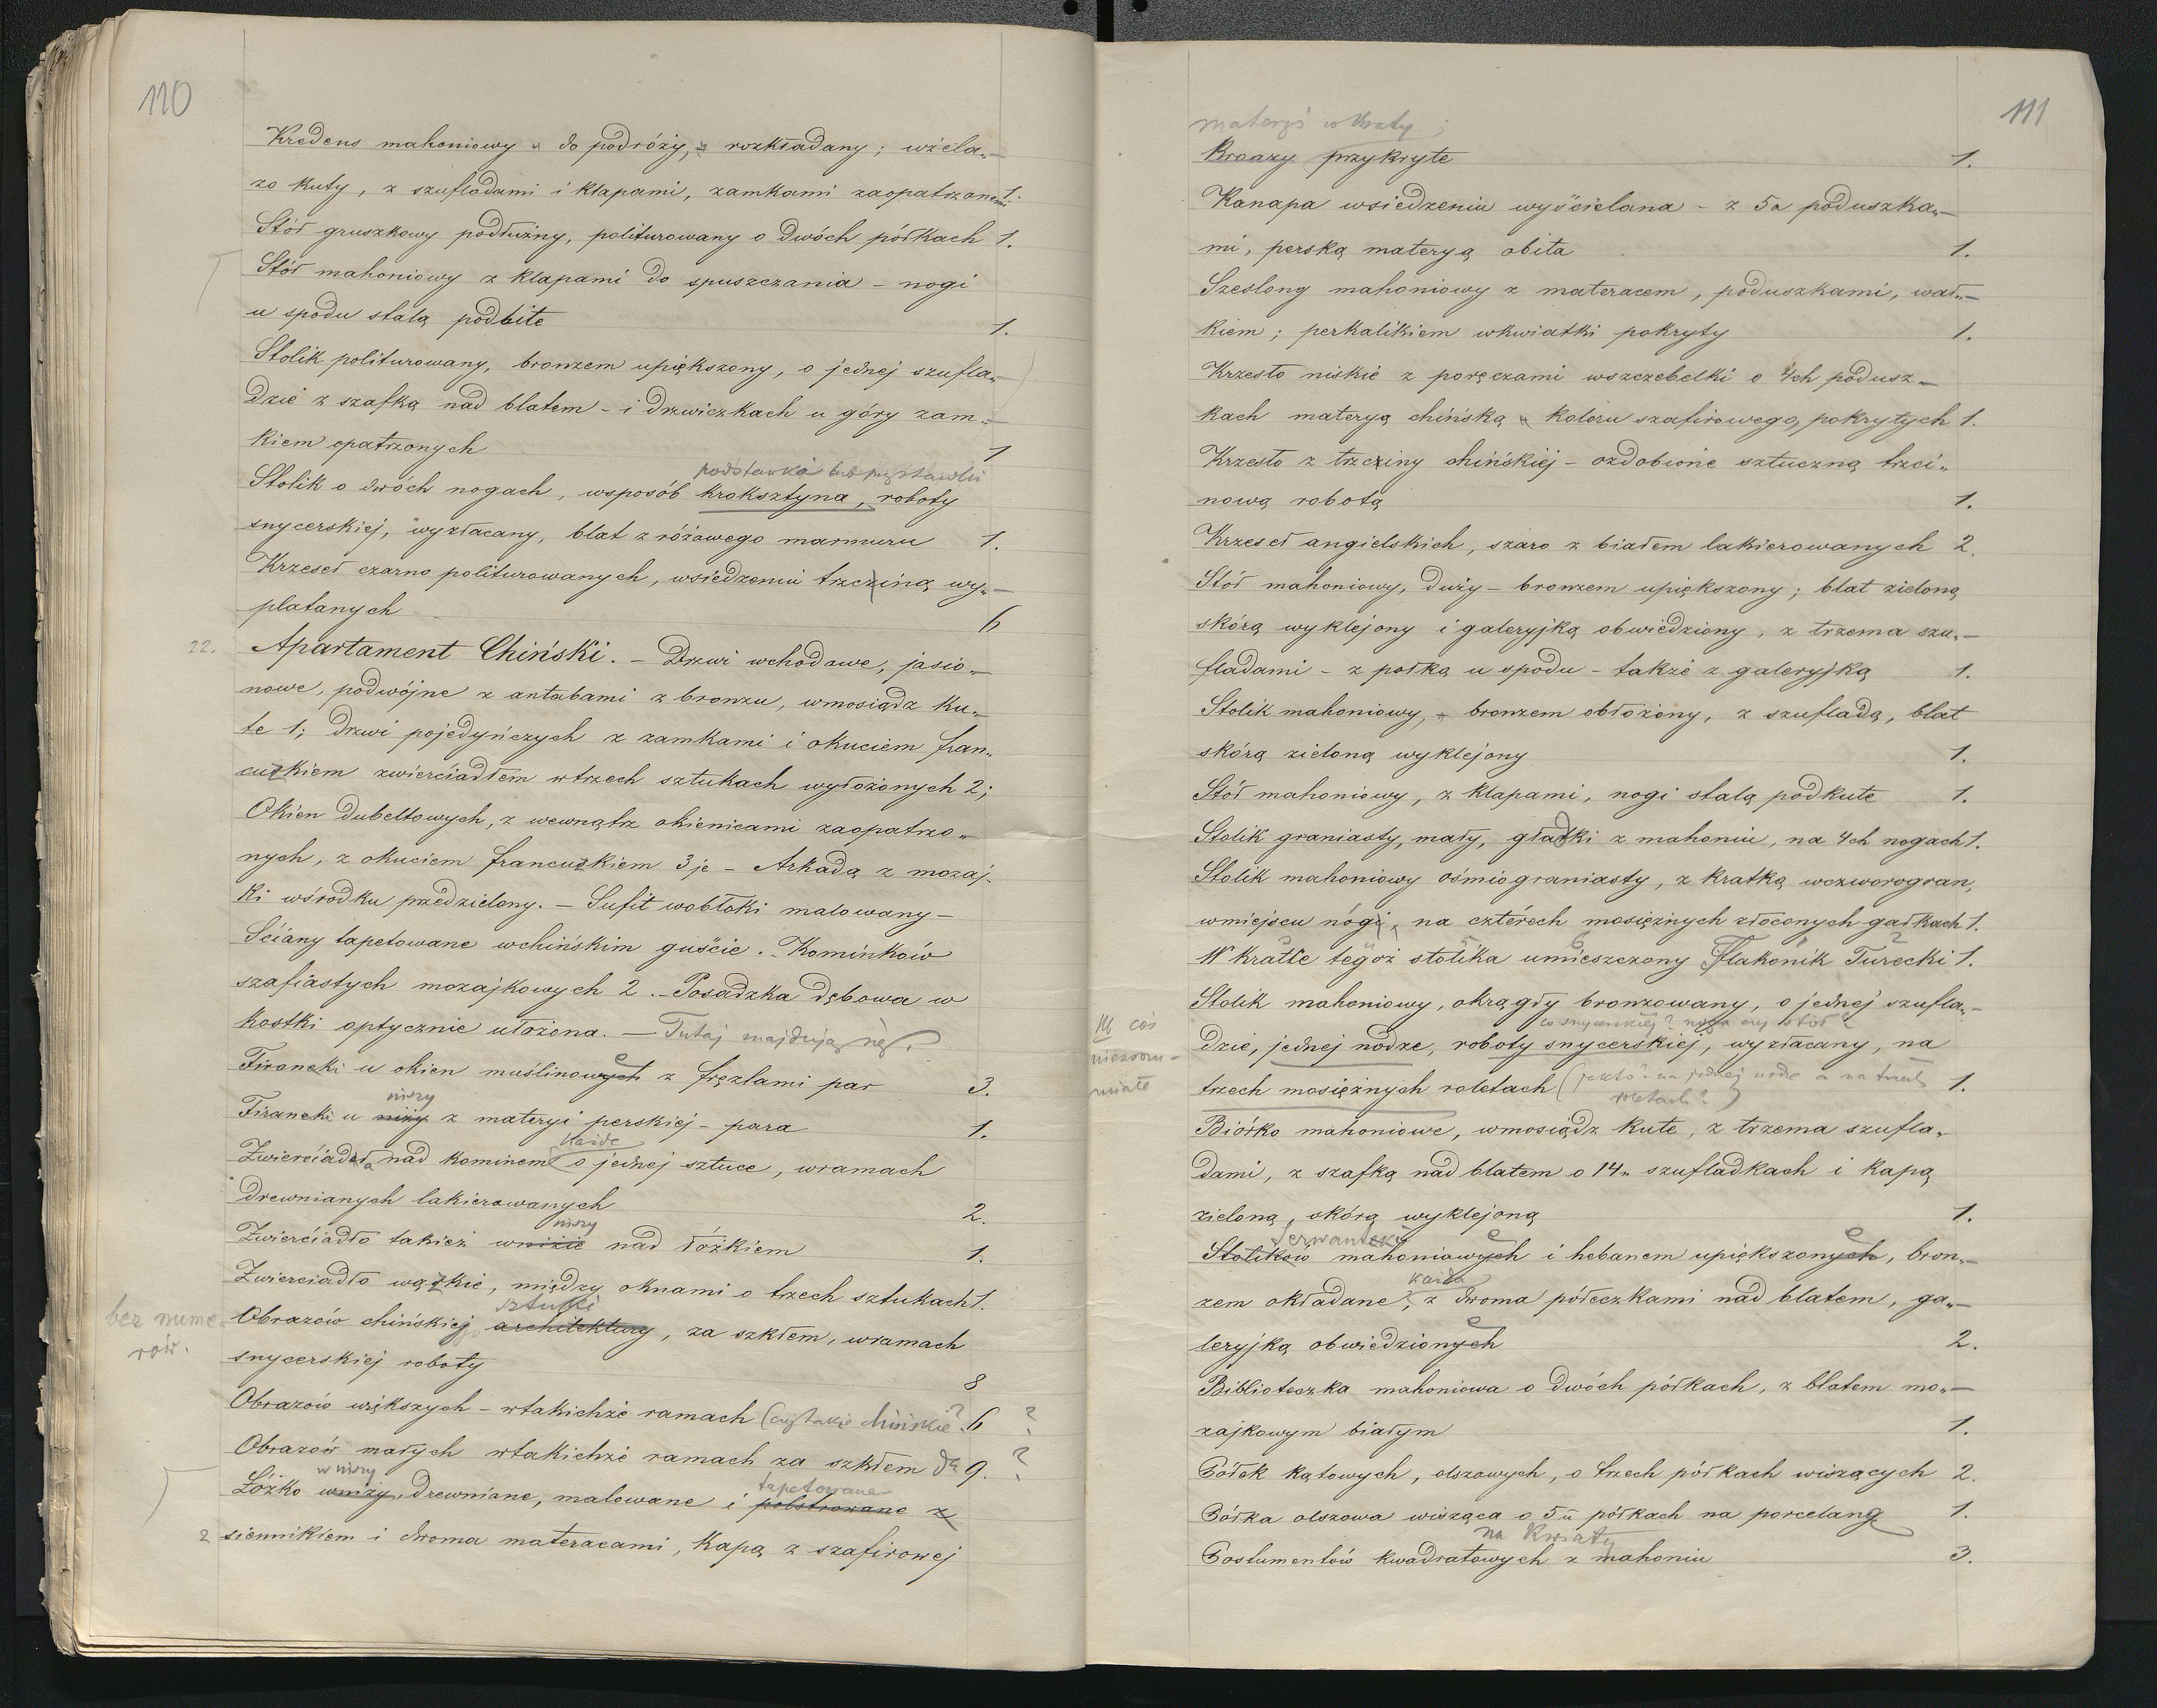 110
Kredens mahoniowy do podróży, rozkładany; wżela„-
zo kuty, z szufladami i klapami, zamkami zaopatrzonemi 1.
Stół gruszkowy podłużny, politurowany o dwóch półkach 1.
Stół mahoniowy z klapami do spuszczania - nogi
u spodu stalą podbite 1.
Stolik politurowany, bronzem upiększony, o jednej szufla„-
dzie z szafką nad blatem - i drzwiczkach u góry zam„-
kiem opatrzonych 1
podstawka lub przystawki
Stolik o dwóch nogach, wsposób kroksztyna, roboty
snycerskiej, wyzłacany, blat z różowego marmuru 1.
Krzeseł czarno politurowanych, wsiedzeniu trzcziną wy„-
platanych 6
22. Apartament Chiński. - Drzwi wchodowe, jasio„-
nowe, podwójne z antabami z bronzu, wmosiądz ku„-
te 1; Drzwi pojedyńczych z zamkami i okuciem fran„
cuzkiem zwierciadłem wtrzech sztukach wyłożonych 2;
Okien dubeltowych, z wewnątrz okienicami zaopatrzo„
nych, z okuciem francuzkiem 3je - Arkadą z mozaj-
ki wśrodku przedzielony. - Sufit wobłoki malowany -
Ściany tapetowane wchińskim guście. - Kominków
szafiastych mozajkowych 2. - Posadzka dębowa w
kostki optycznie ułożona. - Tutaj znajdują się.
Firanki u okien muślinowych e z fręzlami par 3.
niszy
Firanki u niży z materyi perskiej - para 1.
każde
Zwierciadeł nad kominem o jednej sztuce, wramach
drewnianych lakierowanych 2.
niszy
Zwierciadło takież wniżie nad łóżkiem 1.
Zwierciadło wązkie, między oknami o trzech sztukach 1.
bez nume-
rów.
sztuki
Obrazów chińskiej architektury, za szkłem, wramach
snycerskiej roboty 8
Obrazów większych - wtakichże ramach (czy takie chińskie? 6 ?
Obrazów małych wtakichże ramach za szkłem dto 9. ?
w niszy tapetowane
Łóżko wniży, drewniane, malowane i polstrowane z
2 siennikiem i dwoma materacami, kapą z szafirowej
111
materyi w kraty;
Kroazy przykryte 1.
Kanapa wsiedzeniu wyścielana - z 5a poduszka„-
mi, perską materyą obita 1.
Szeslong mahoniowy z materacem, poduszkami, wał„-
kiem; perkalikiem wkwiatki pokryty 1.
Krzesło niskie z poręczami wszczebelki o 4ch podusz„-
kach materyą chińską koloru szafirowego, pokrytych 1.
Krzesło z trzcziny chińskiej - ozdobione sztuczną trzci„
nową robotą 1.
Krzeseł angielskich, szaro z białem lakierowanych 2.
Stół mahoniowy, duży - bronzem upiększony; blat zieloną
skórą wyklejony i galeryjką obwiedziony, z trzema szu„-
fladami - z połką u spodu - także z galeryjką 1.
Stolik mahoniowy, bronzem obłożony, z szufladą, blat
skórą zieloną wyklejony 1.
Stół mahoniowy, z klapami, nogi stalą podkute 1.
Stolik graniasty, mały, gładki z mahoniu, na 4ch nogach 1.
Stolik mahoniowy ośmiograniasty, z kratką wczworogran,
wmiejscu nógi, na czterech mosiężnych złoconych gałkach 1.
W kratce tegoż stolika umieszczony Flakonik Turecki 1.
Stolik mahoniowy, okrągły bronzowany, o jednej szufla„-
tu coś
niezrozu-
miałe
co snycerskiej? noga czy stół?
dzie, jednej nodze, roboty snycerskiej, wyzłacany, na
trzech mosiężnych roletach (jakto? na jednej nodze a na trzech roletach?) 1.
Biórko mahoniowe, wmosiądz kute, z trzema szufla„
dami, z szafką nad blatem o 14„ szufladkach i kapą
zieloną, skórą wyklejoną 1.
Serwantki e e
Stolików mahoniowych i hebanem upiększonych, bron„-
każda
zem okładane, z dwoma półeczkami nad blatem, ga„-
leryjką obwiedzionych e 2.
Biblioteczka mahoniowa o dwóch półkach, z blatem mo„-
zajkowym białym 1.
Półek kątowych, olszowych, o trzech półkach wiszących 2.
Półka olszowa wisząca o 5u półkach na porcelanę 1.
na kwiaty
Postumentów kwadratowych z mahoniu 3.